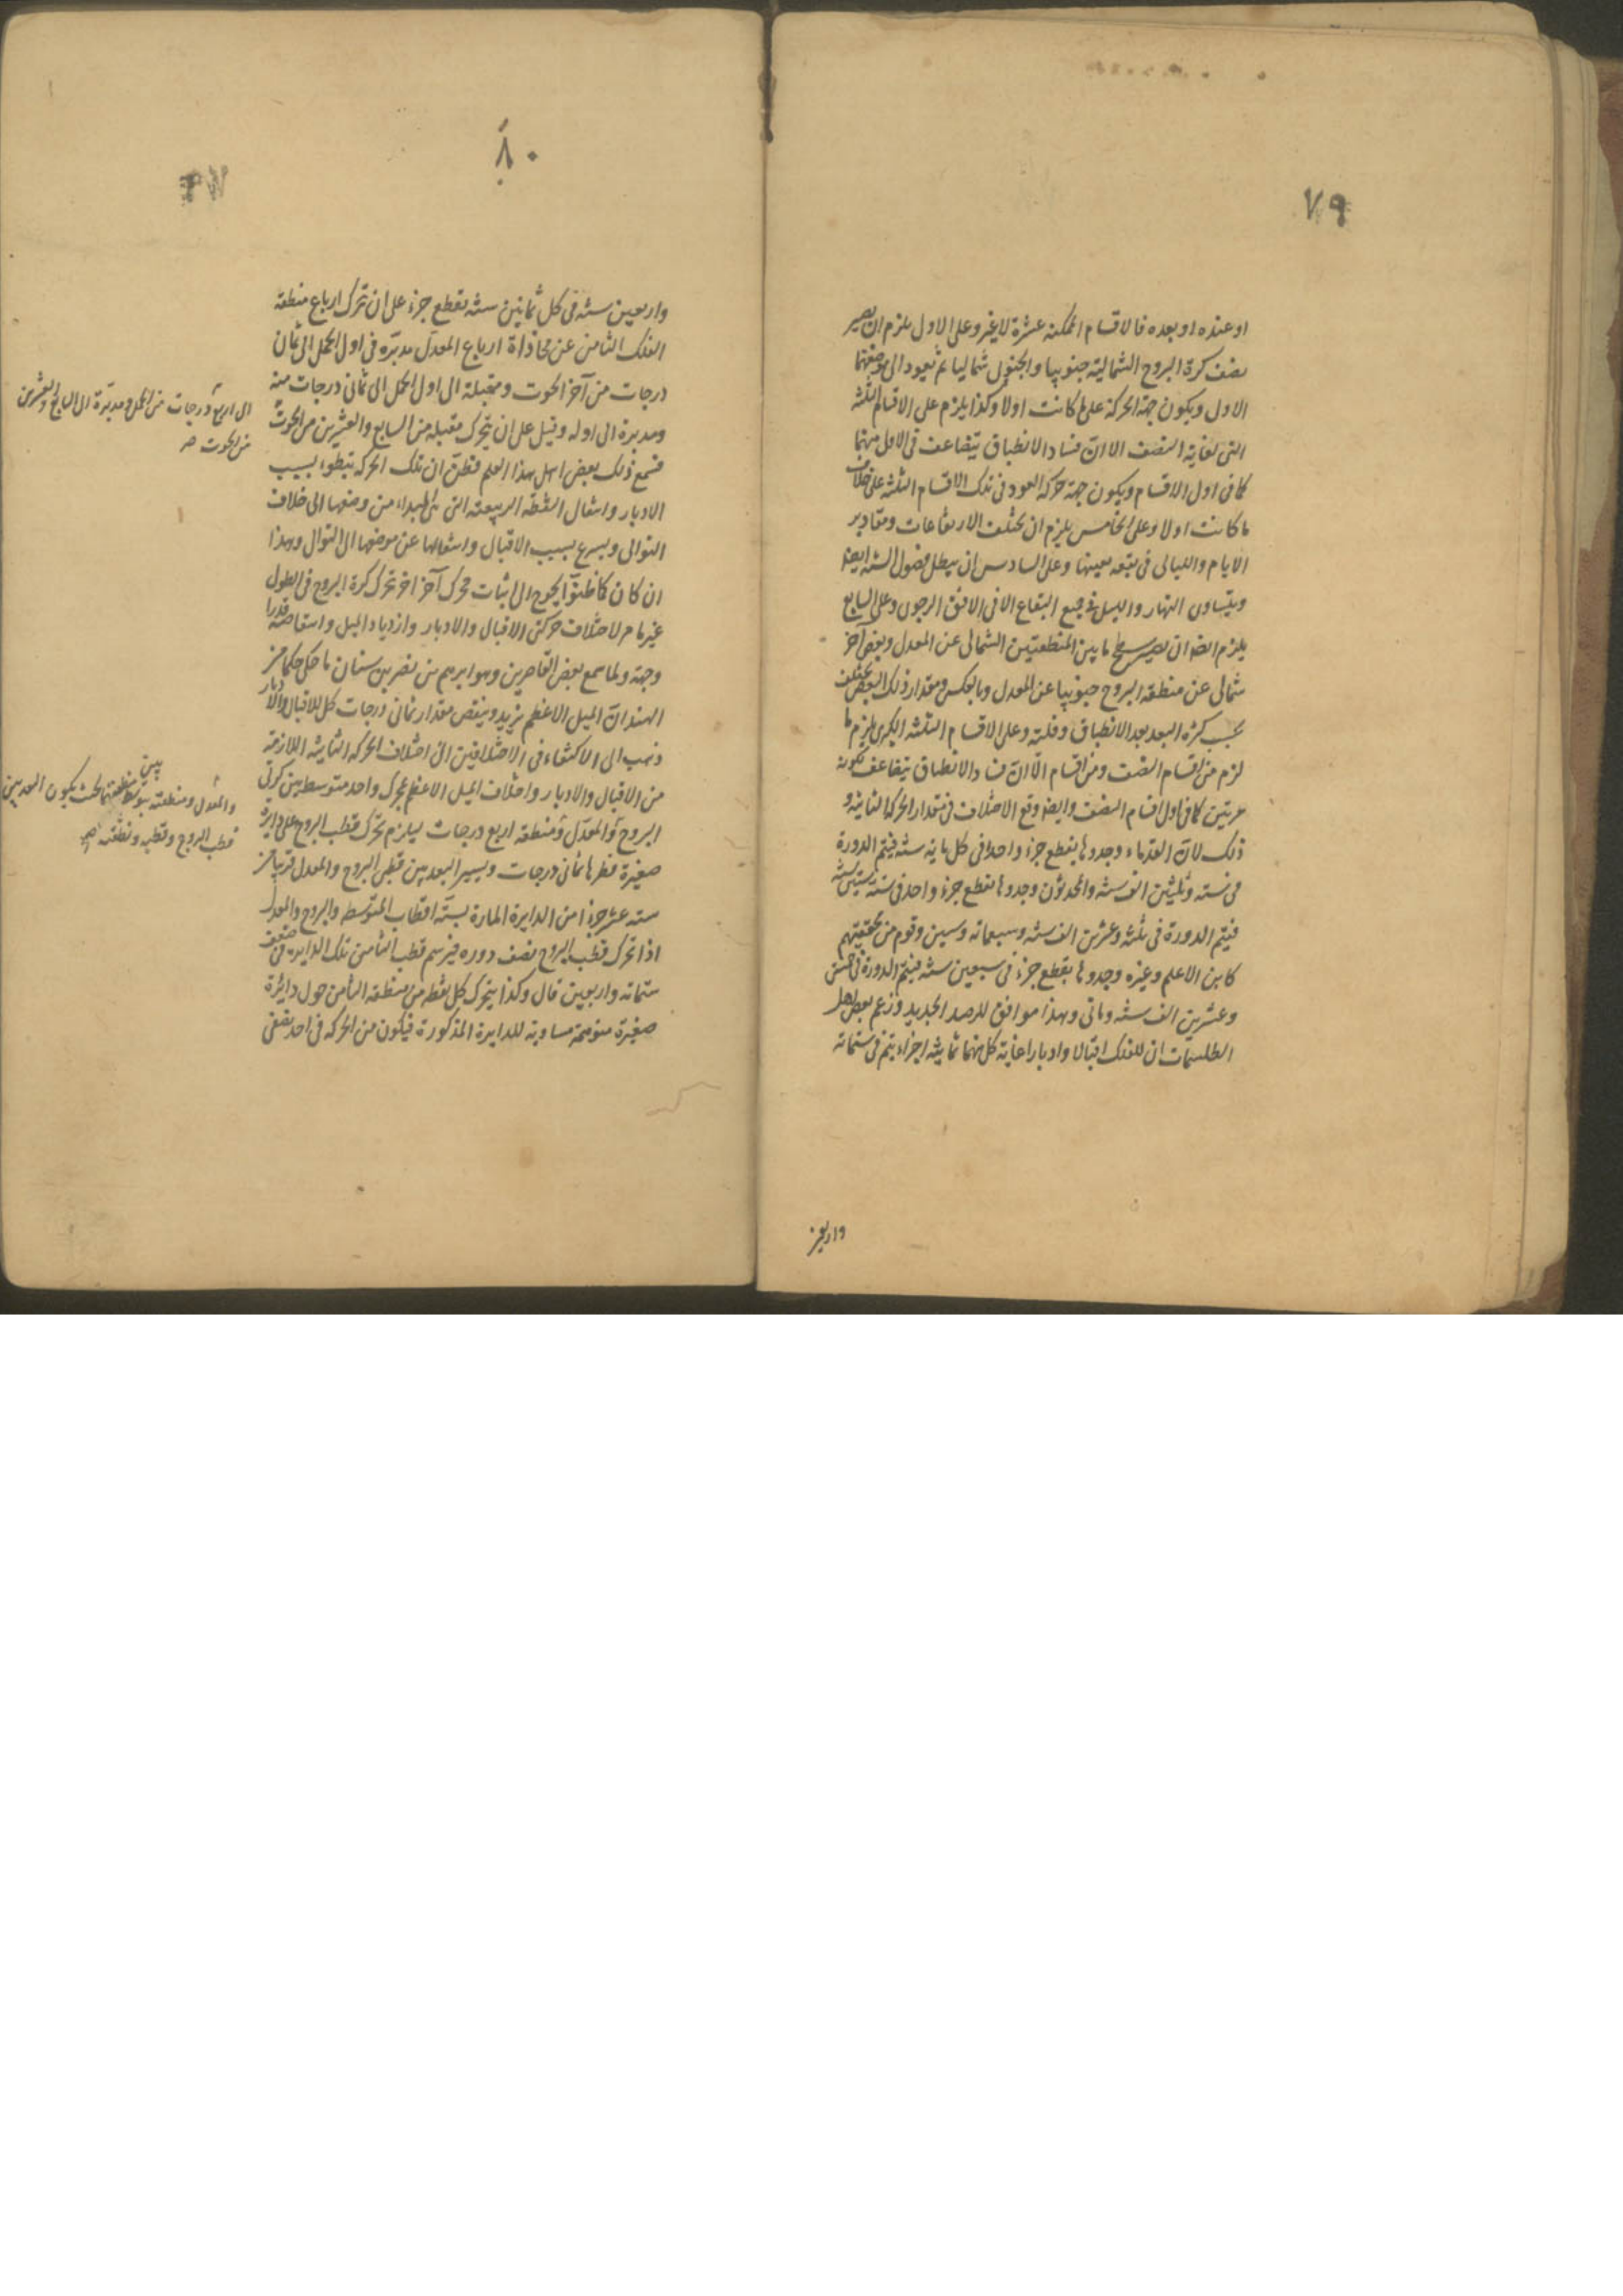 ٧٩
او عنده او بعده فالاقسام الممكنة عشرة لا غير وعلى الاول يلزم ان يصير
نصف كرة البروج الشمالية جنوبيا والجنوبى شماليا ثم يعود الى موضعهما
الاول ويكون جهة الحركة على ما كانت اولا وكذا يلزم على الاقسام الثلثة
التى لغاية النصف الا ان فساد الانطباق يتضاعف فى الاول منهما
كما فى اول الاقسام ويكون جهة حركة العود فى تلك الاقسام الثلثة على خلاف
ما كانت اولا وعلى الخامس يلزم ان يختلف الارتفاعات ومقادير
الايام والليالى فى بقعة بعينها وعلى السادس ان يبطل فصول السنة ايضا
ويتساوى النهار والليل فى جميع البقاع الا فى الافق الرحوى وعلى السابع
يلزم ايضا ان يصير سطح ما بين المنطقتين الشمالى عن المعدل وبعض آخر
شمالى عن منطقة البروج جنوبيا عن المعدل وبالعكس ومقدار ذلك البعض يختلف
بحسب كثرة البعد بعد الانطباق وقلته وعلى الاقسام الثلثة الكبرى يلزم ما
لزم من اقسام النصف ومن اقسام الا ان فساد الانطباق يتضاعف لكونه
مرتين كما فى اول اقسام النصف وايضا وقع الاختلاف فى مقدار الحركة الثانية و
ذلك لان القدماء وجدوها يقطع جزءا واحدا فى كل مائة سنة فيتم الدورة
فى ستة وثلثين الف سنة والمحدثون وجدوها يقطع جزءا واحدا فى ستة وستين سنة
فيتم الدورة فى ثلثة وعشرين الف سنة وسبعمائة وستين وقوم من محققيهم
كابن الاعلم وغيره وجدوها يقطع جزءا فى سبعين سنة فيتم الدورة فى خمس
وعشرين الف سنة ومائتى وهذا موافق للرصد الجديد وزعم بعض اهل
الطلسمات ان للفلك اقبالا وادبارا غاية كل منهما ثمانية اجزاء يتم فى ستمائة
واربعين
٨٠
واربعين سنة فى كل ثمانين سنة يقطع جزءا على ان تحرك ارباع منطقة
الفلك الثامن عن محاذاة ارباع المعدل مدبرة فى اول الحمل الى ثمان
درجات من آخر الحوت ومقبلة الى اول الحمل الى ثمانى درجات منه
ومدبرة الى اوله وقيل على ان يتحرك مقبلة من السابع والعشرين من الحوت
الى اربع درجات من الحمل ومدبرة الى السابع والعشرين
من الحوت صح
فسمع ذلك بعض اهل هذا العلم فظن ان تلك الحركة يتبطو بسبب
الادبار وانتقال النقطة الربيعية التى هى المبداء من وضعها الى خلاف
التوالى ويسرع بسبب الاقبال وانتقالها عن موضعها الى التوالى وهذا
ان كان كما ظنوا يحوج الى اثبات محرك آخر اخر تحرك كرة البروج فى الطول
غير ما مر لاختلاف حركتى الاقبال والادبار وازدياد الميل وانتقاصه قدرا
وجهة ولما سمع بعض القاصرين وهو ابرهيم بن نصر بن سنان ما حكى حكماء من
الهند ان الميل الاعظم يزيد وينقص مقدار ثمانى درجات كل للاقبال والادبار
ذهب الى الاكتفاء فى الاختلافين الى اختلاف الحركة الثانية اللازمة
من الاقبال والادبار واختلاف الميل الاعظم بمحرك واحد متوسط بين كرتى
البروج والمعدل ومنطقة اربع درجات ليلزم تحرك قطب البروج على دائرة
والمعدل ومنطقته بتوسط بين منطقتيهما بحيث يكون البعد بين
قطب البروج وقطبه ومنطقته صح
صغيرة قطرها ثمانى درجات ويسير البعد بين قطبى البروج والمعدل قريبا من
ستة عشر جزءا من الدايرة المارة بستة اقطاب المتوسط والبروج والمعدل
اذا تحرك قطب البروج نصف دوره فيرسم قطب الثامن تلك الدايرة فى ضعف
ستمائة واربعين قال وكذا يتحرك كل نقطة من منطقة الثامن حول دائرة
صغيرة متوهمة مساوية للدايرة المذكورة فيكون من الحركة فى احد نصفى